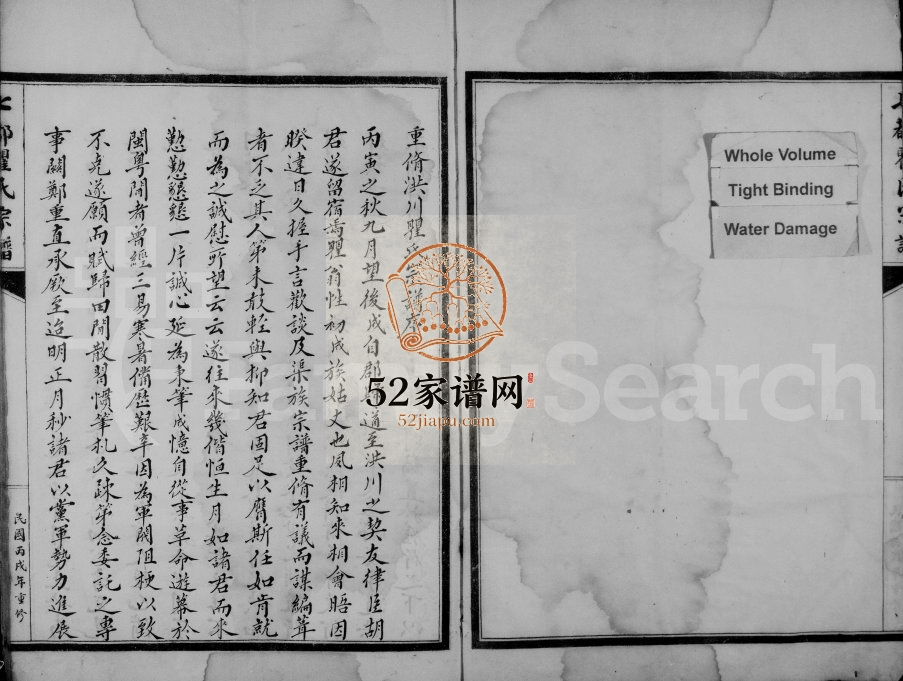 Whole Volume
Tight Binding
Water Damage
重脩洪川瞿氏宗譜序
丙寅之秋九月望後成自郡道至洪川之契友律臣胡
君遂留宿焉瞿翁性初成族姑丈也夙相知來相會晤因
暌違日久握手言歡談及渠族宗譜重脩有議而謀編葺
者不乏其人第未敢輕與抑知君固足以膺斯任如肯就
而為之誠慰所望云云遂往來幾偕恒生月如諸君而來
懃懃懇懇一片誠心延為秉筆成憶自從事草命遊幕於
閩粵間者曾經三易寒暑備歷艱辛因為軍閥阻梗以致
不克遂願而賦歸田閒散習慣筆札久疎第念委託之專
事關鄭重直承厥至迨明正月秒諸君以黨軍勢力進展
民國丙戌年重修
七都瞿氏宗譜
52家谱网
52jiapu.com
FamilySearch